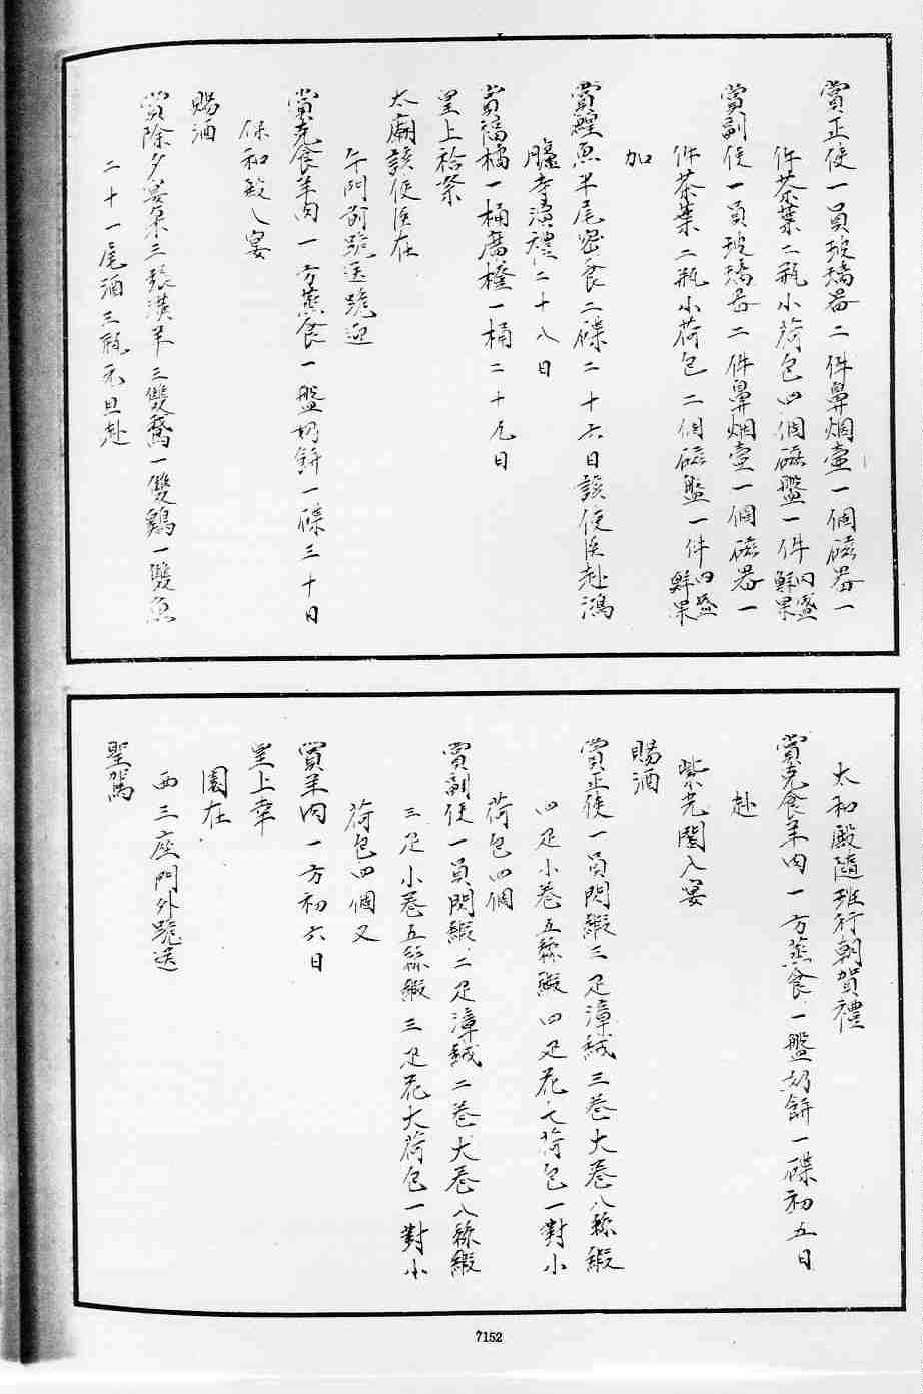 賞正使一員玻璃器二件鼻烟壺一個磁器一
件茶葉二瓶小荷包四個磁盤一件四盛鮮果
賞副使一員玻璃器二件鼻烟壺一個磁器一
件茶葉二瓶小荷包二個磁盤一件四盛鮮果
加
賞鰉魚半尾蜜食二碟二十六日該使臣赴鴻
臚寺演禮二十八日
賞福橘一桶廣橙一桶二十九日
皇上祫祭
太廟該使臣在
午門前跪送跪迎
賞克食羊肉一方蒸食一盤奶餅一碟三十日
保和殿入宴
賜酒
賞除夕宴桌三張漢羊三雙鵞一雙鷄一雙魚
二十一尾酒三瓶元旦赴
太和殿隨班行朝賀禮
賞克食羊肉一方蒸食一盤奶餅一碟初五日
赴
紫光閣入宴
賜酒
賞正使一員閃緞三疋漳絨三卷大卷八絲緞
四疋小卷五絲緞四疋花大荷包一對小
荷包四個
賞副使一員閃緞二疋漳絨二卷大卷八絲緞
三疋小卷五絲緞三疋花大荷包一對小
荷包四個又
賞羊肉一方初六日
皇上幸
園在
西三座門外跪送
聖駕
7152